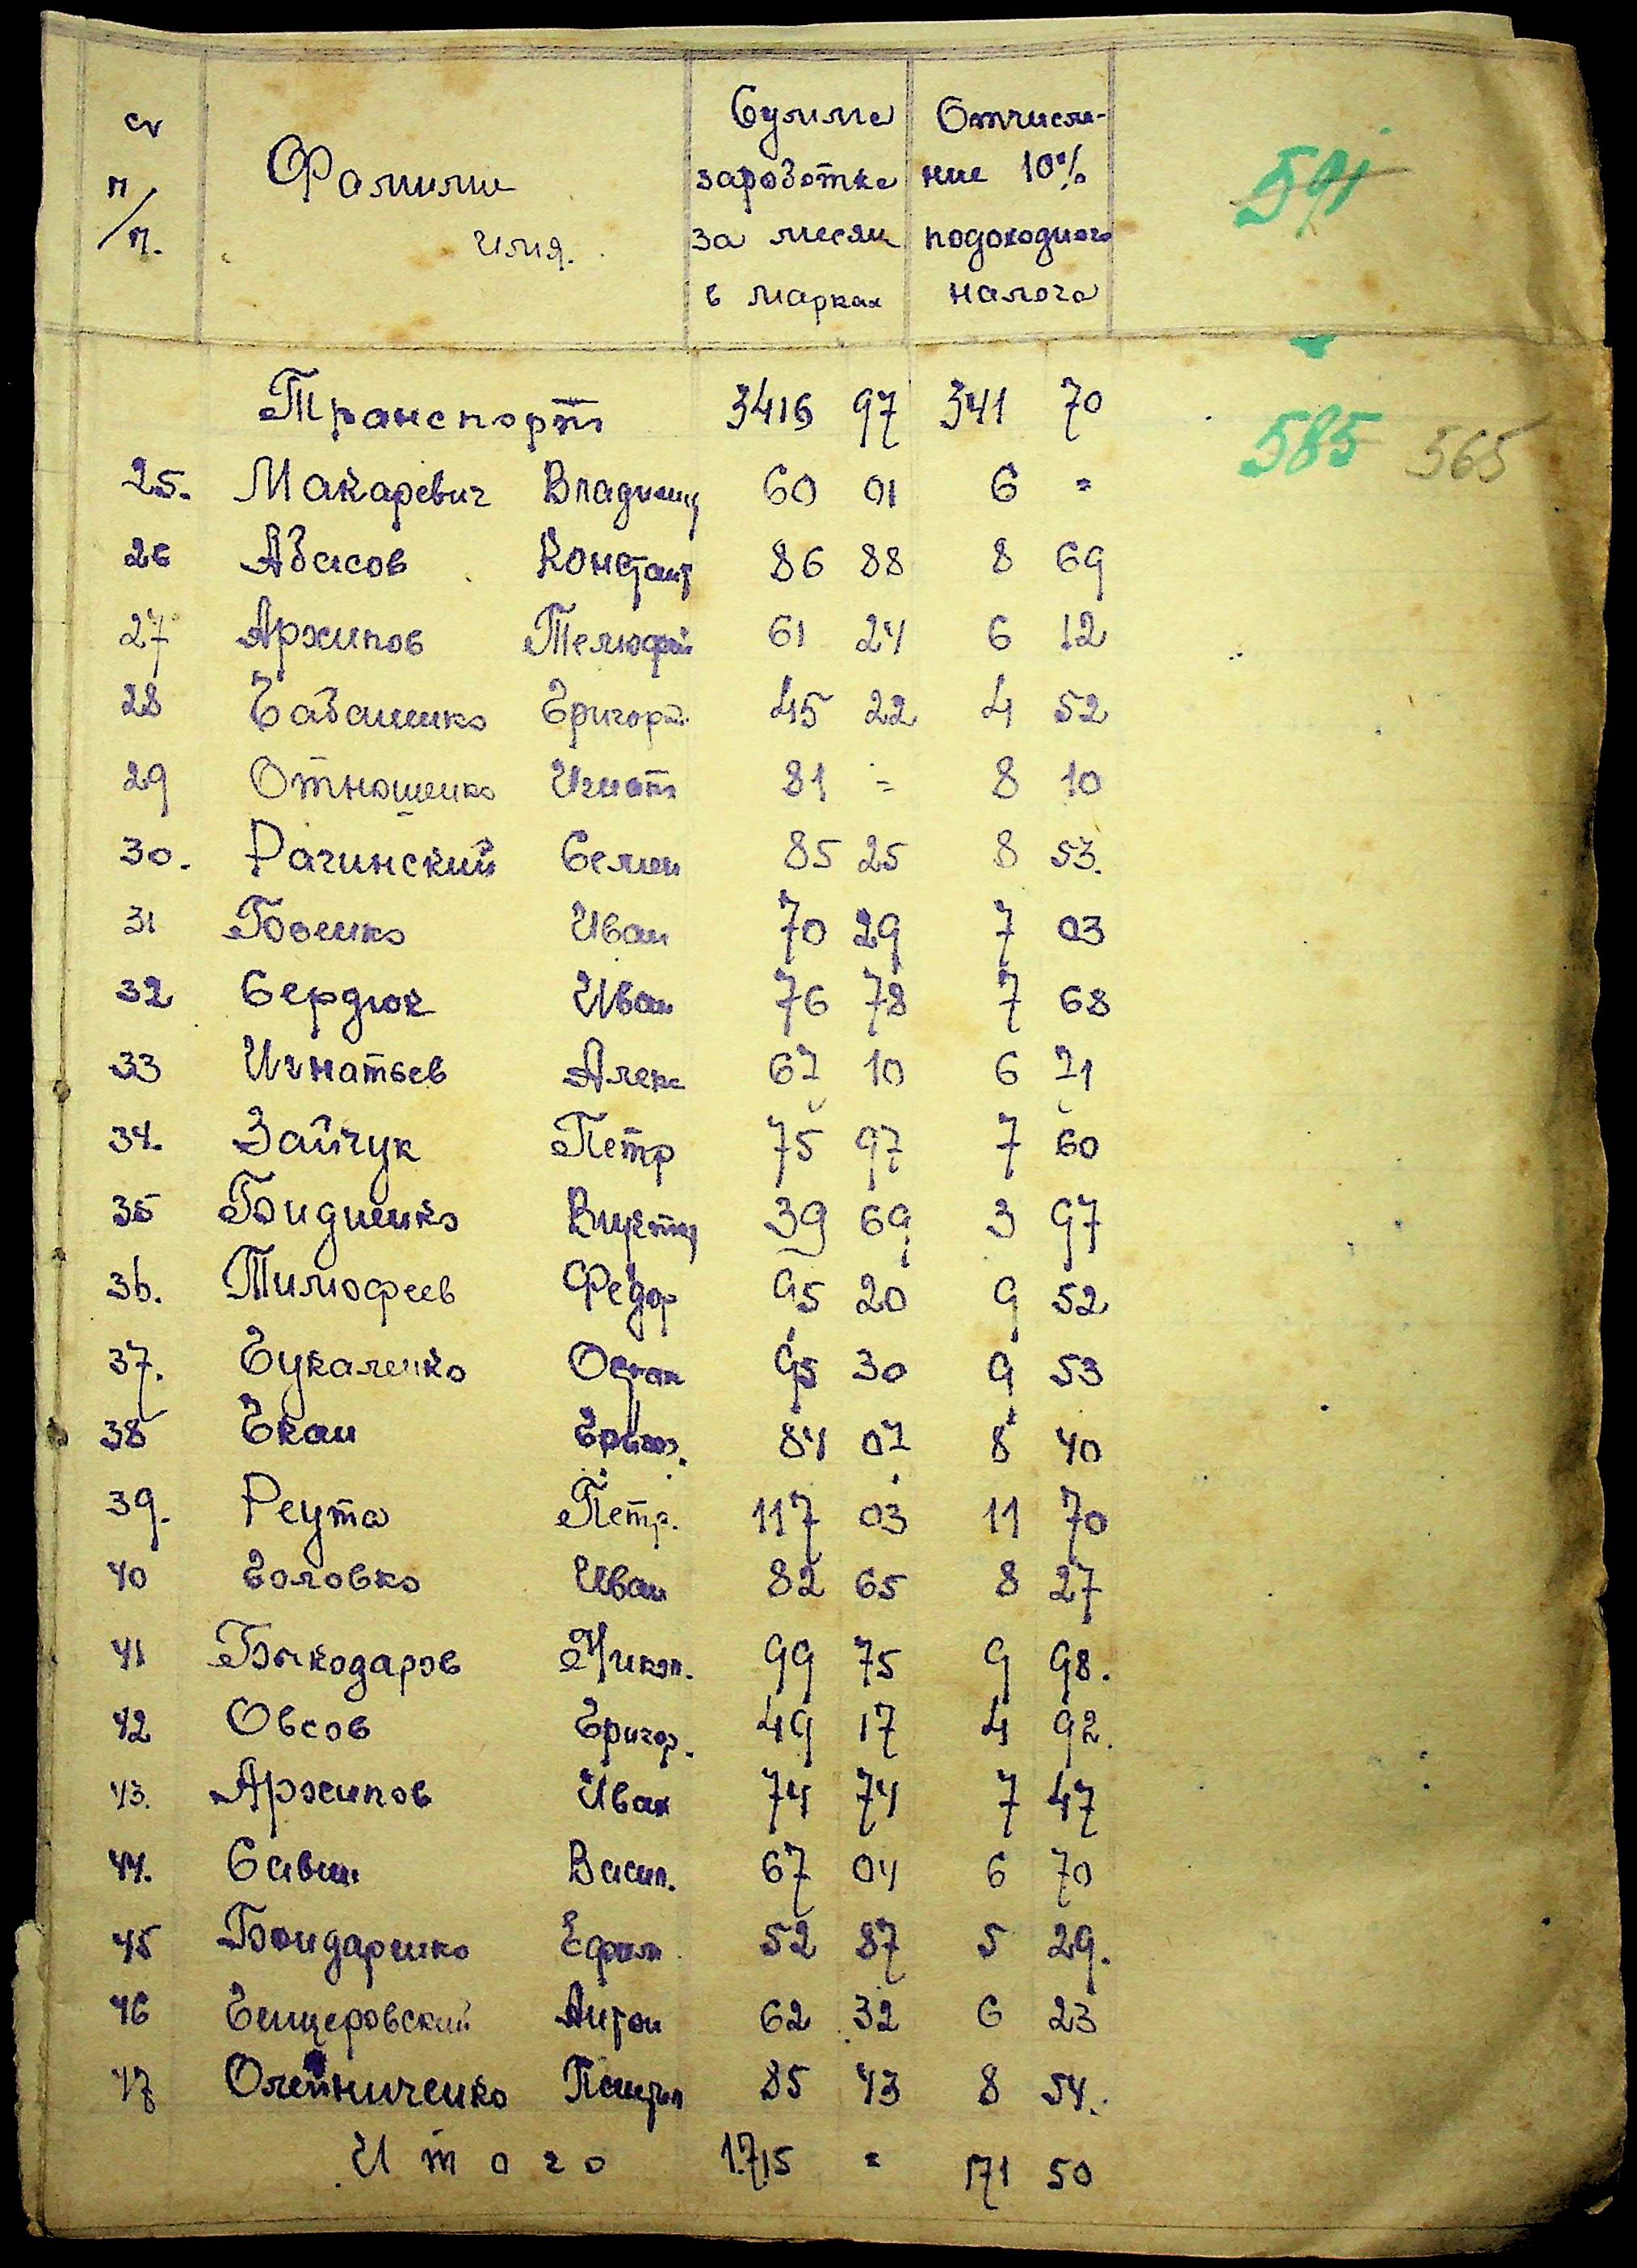 сч п/п. Фамилие имя. Сумма заработка за месяц в марках Отчисле-ние 10% подоходного налога 591
Транспорт 3416 97 341 70 585 565
25. Макаревич Владимир 60 01 6 =
26 Абасов Констант 86 88 8 69
27 Архипов Тимофей 61 24 6 12
28 Габашенко Григорий 45 22 4 52
29 Отнюшенко Игнат 81 = 8 10
30. Рагинский Семен 85 25 8 53.
31 Бовенко Иван 70 29 7 03
32 Сердюк Иван 76 78 7 68
33 Игнатьев Алекс 67 10 6 71
34. Зайчук Петр 75 97 7 60
35 Бидненко Виктор 39 69 3 97
36. Тимофеев Федор 95 20 9 52
37. Гукаленко Остап 95 30 9 53
38 Ган 84 07 8 40
39. Реута Петр. 117 03 11 70
40 Головко Иван 82 65 8 27
41 Быкодаров Никол. 99 75 9 98.
42 Овсов Григор. 49 17 4 92.
43. Архипов Иван 74 74 7 47
44. Савин Васил. 67 04 6 70
45 Бондаренко Ефим 52 87 5 29.
46 Генцеровский Антон 62 32 6 23
47 Олейниченко 85 43 8 54.
Итого 1715 = 171 50